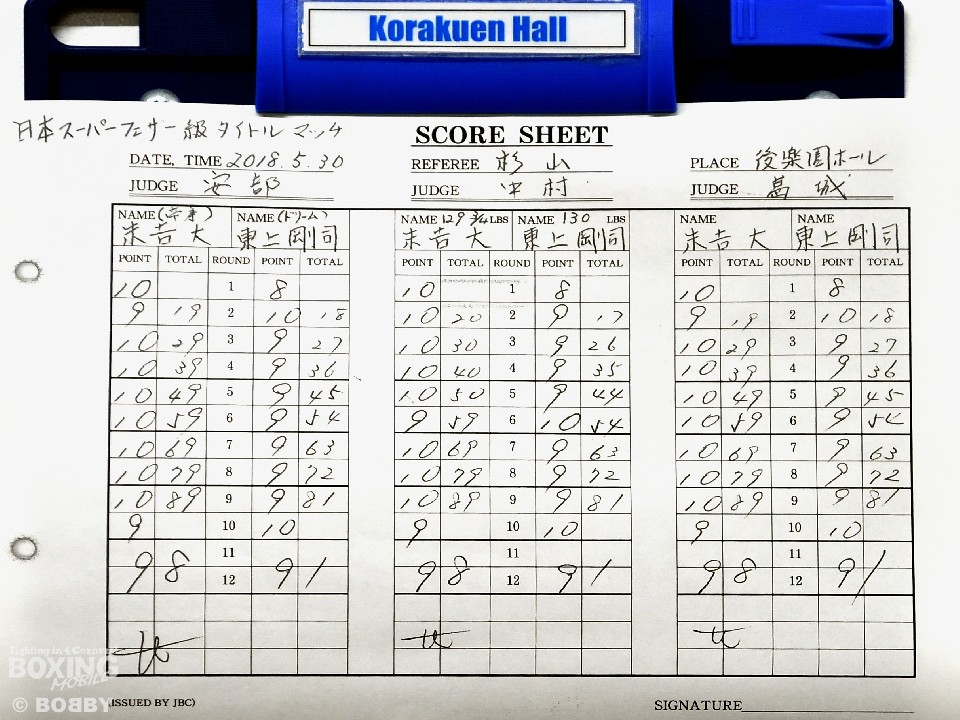 Korakuen Hall
日本スーパーフェザー級タイトルマッチ
SCORE SHEET
DATE, TIME 2018.5.30 REFEREE 杉山 PLACE 後楽園ホール
JUDGE 安部 JUDGE 中村 JUDGE 葛城
NAME NAME (ドリーム) NAME 129 3/4 LBS NAME 130 LBS NAME NAME
末吉大 東上剛司 末吉大 東上剛司 末吉大 東上剛司
POINT TOTAL ROUND POINT TOTAL POINT TOTAL ROUND POINT TOTAL POINT TOTAL ROUND POINT TOTAL
10 1 8 10 1 8 10 1 8
9 19 2 10 18 10 20 2 9 17 9 19 2 10 18
10 29 3 9 27 10 30 3 9 26 10 29 3 9 27
10 39 4 9 36 10 40 4 9 35 10 39 4 9 36
10 49 5 9 45 10 50 5 9 44 10 49 5 9 45
10 59 6 9 54 9 59 6 10 54 10 59 6 9 54
10 69 7 9 63 10 69 7 9 63 10 69 7 9 63
10 79 8 9 72 10 79 8 9 72 10 79 8 9 72
10 89 9 9 81 10 89 9 9 81 10 89 9 9 81
9 10 10 9 10 10 9 10 10
11 11 11
98 12 91 98 12 91 98 12 91
Fighting in 4 Corner
BOXING
MOBILE
© BOBBY
(ISSUED BY JBC) SIGNATURE